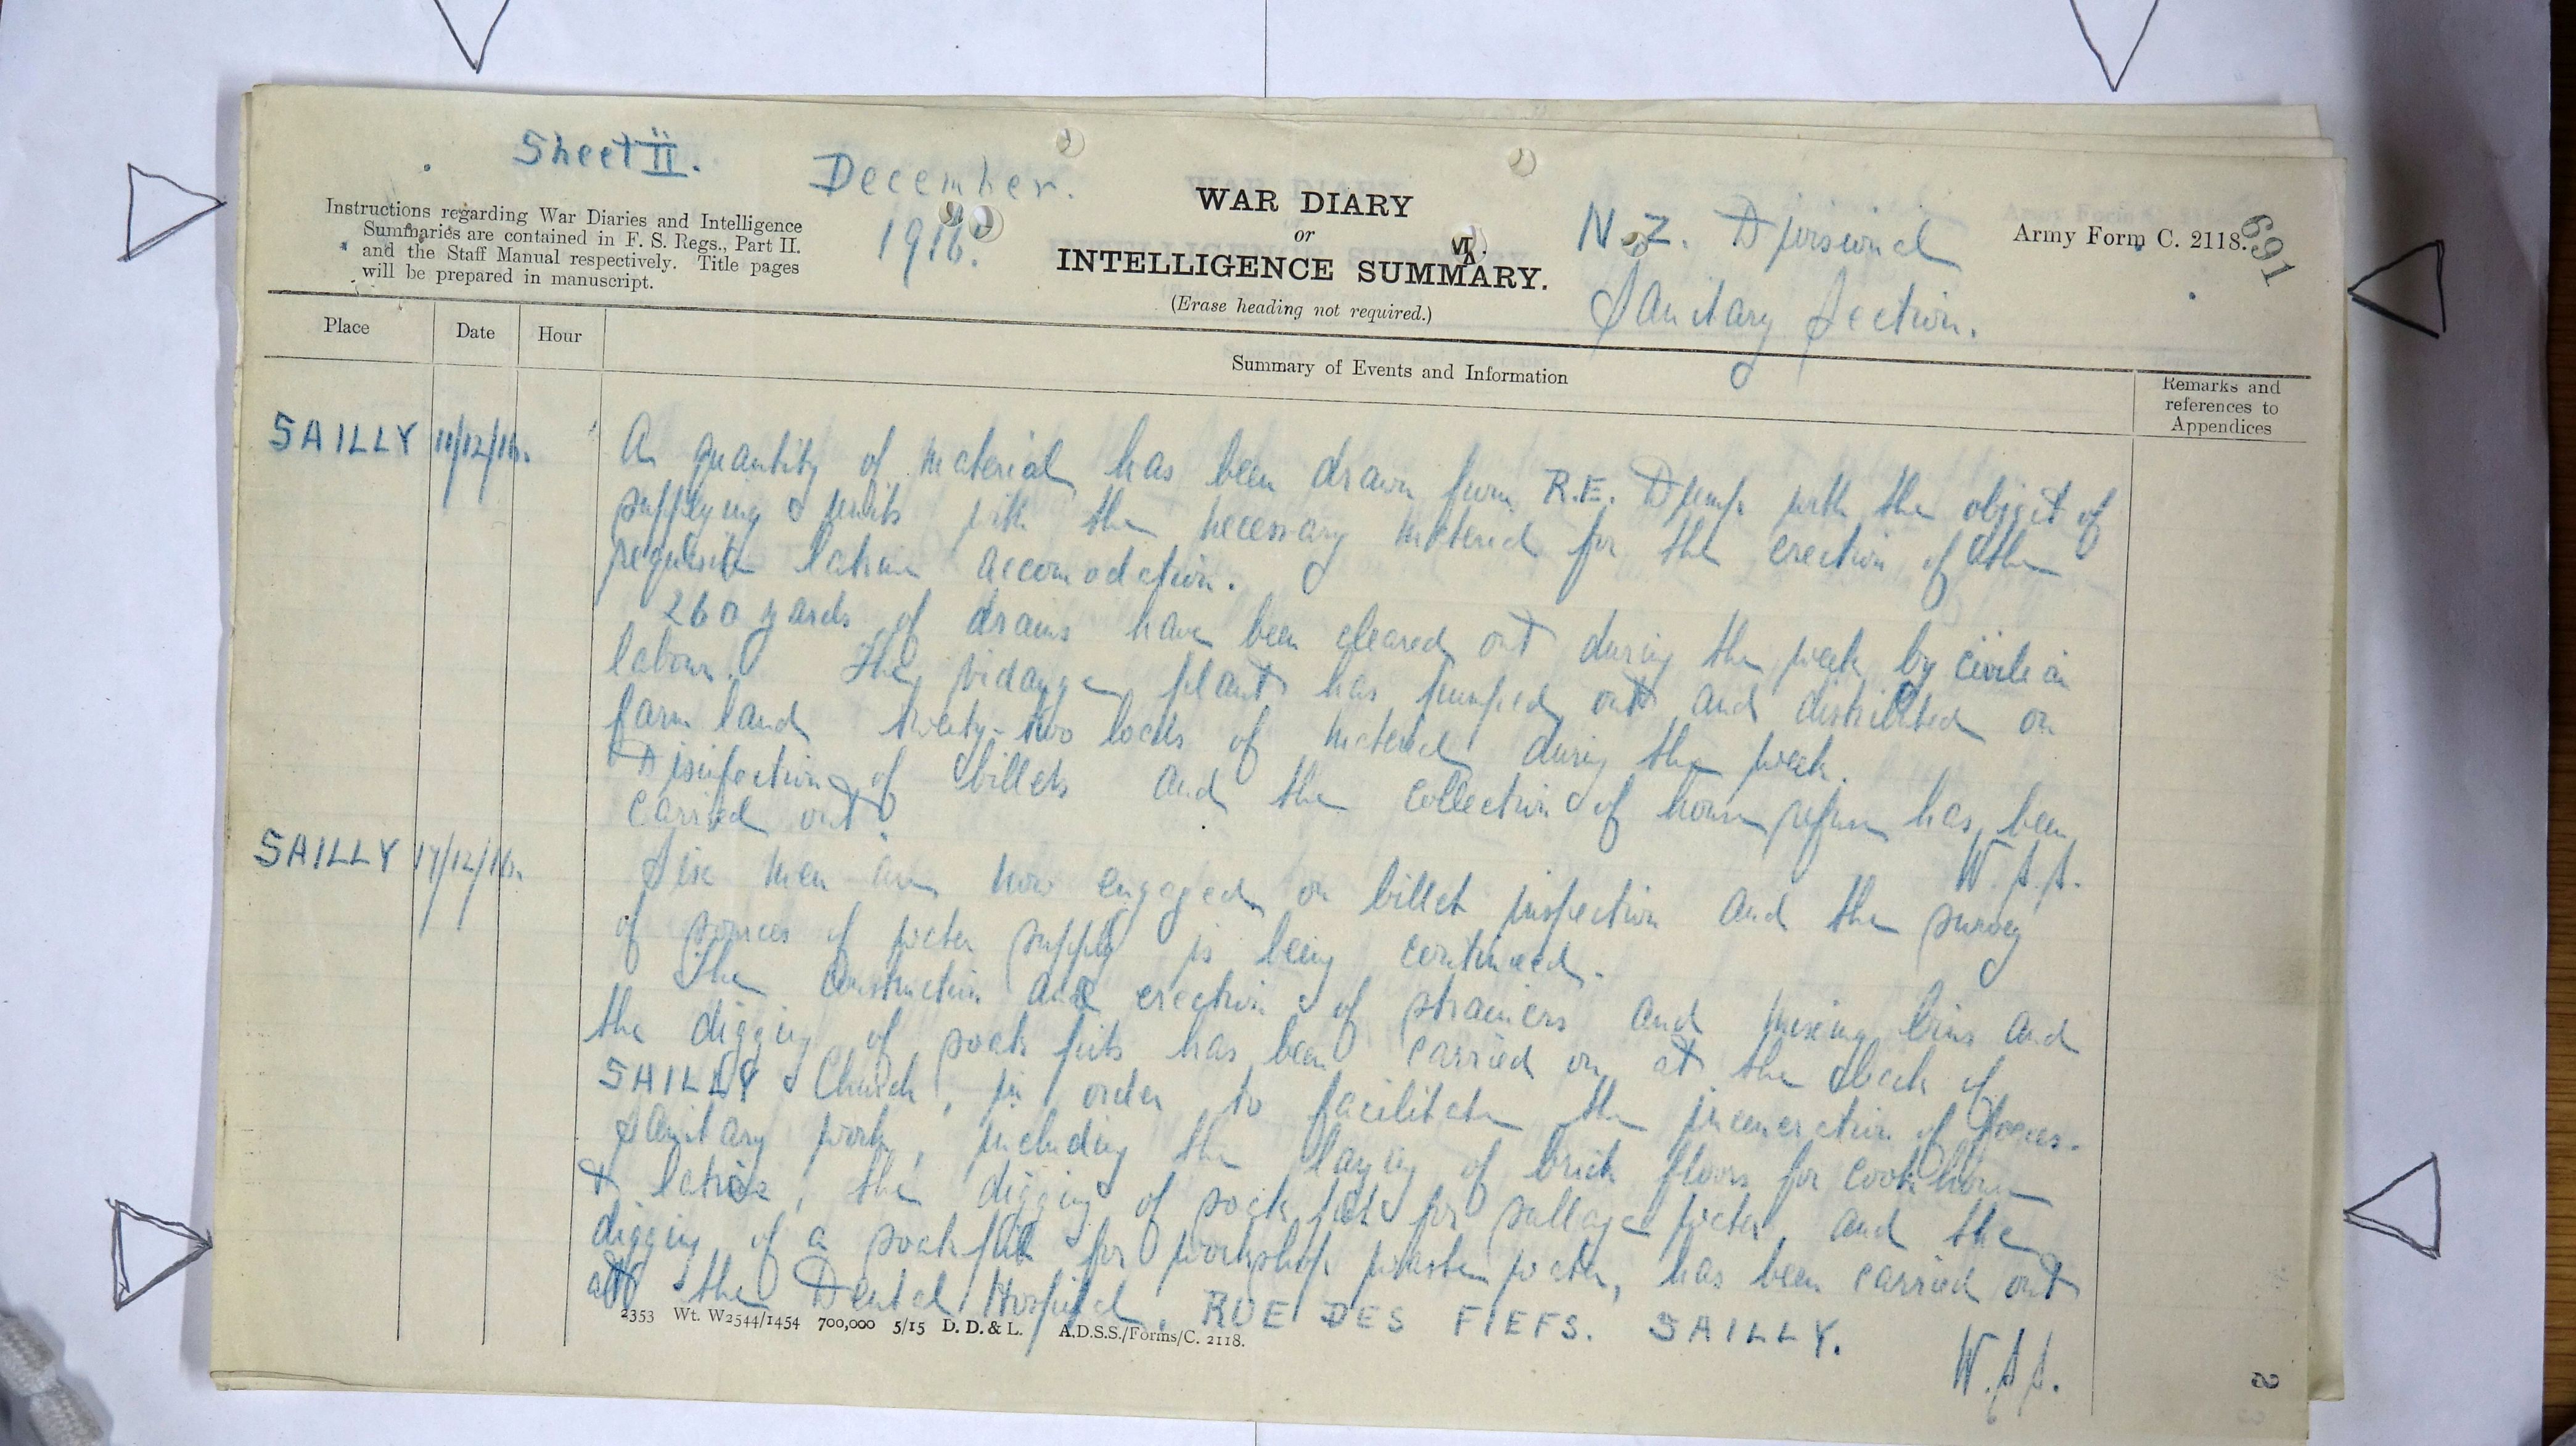 Sheet II.
December.
1916.
Instructions regarding War Diaries and Intelligence
Summaries are contained in F. S. Regs., Part II.
and the Staff Manual respectively. Title pages
will be prepared in manuscript.
WAR DIARY
or
INTELLIGENCE SUMMARY.
VI.
(Erase heading not required.)
N.Z. Divisional
Sanitary Section.
Army Form C. 2118.
691
Place Date Hour
Summary of Events and Information
Remarks and
references to
Appendices
SAILLY 11/12/16. A quantity of material has been drawn from R.E. Dump with the object of
supplying units with the necessary material for the erection of the
requisite latrine accomodation.
260 yards of drains have been cleared out during the week by civilian
labour. The vidange plant has pumped out and distributed on
farm land twenty-two loads of material during the week.
Disinfection of billets and the collection of house refuse has been
carried out.
W.S.S.
SAILLY 17/12/16. Six men are now engaged on billet inspection and the survey
of sources of water supply is being continued.
The construction and erection of strainers and mixing bins and
the digging of soak pits has been carried on at the back of
SAILLY Church, in order to facilitate the incineration of foeces.
Sanitary work, including the laying of brick floors for cook house
& latrine, the digging of soak pit for sullage water and the
digging of a soak pit for workshop waste water, has been carried out
at the Dental Hospital, RUE DES FIEFS. SAILLY.
W.S.S.
2353 Wt. W2544/1454 700,000 5/15 D. D. & L. A.D.S.S./Forms/C. 2118.
8